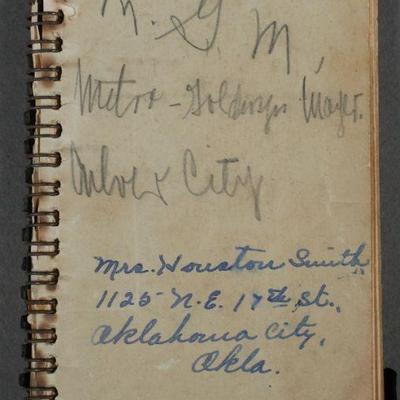 M. G. M.
Metro-Goldwyn Mayer.
Culver City
Mrs. Houston Smith
1125 N.E. 17th St.,
Oklahoma City,
Okla.